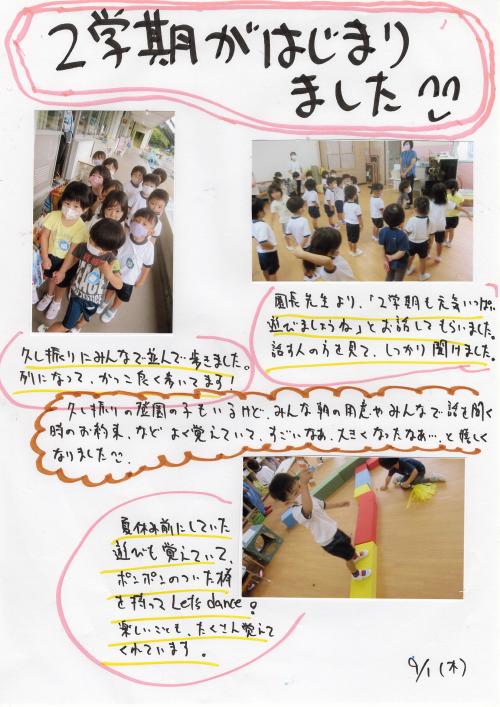 2学期がはじまり
ました
園長先生より、「2学期も元気いっぱい
遊びましょうね」とお話してもらいました。
話す人の方を見て、しっかり聞けました。
久し振りにみんなで並んで歩きました。
列になって、かっこ良く歩いてます!
久し振りの登園の子もいるけど、みんな朝の用意やみんなで話を聞く
時のお約束、など よく覚えていて、すごいなあ、大きくなったなあ…と嬉しく
なりました
夏休み前にしていた
遊びも覚えていて、
ポンポンのついた棒
を持って Let's dance!
楽しいことも、たくさん覚えて
くれています。
9/1(木)